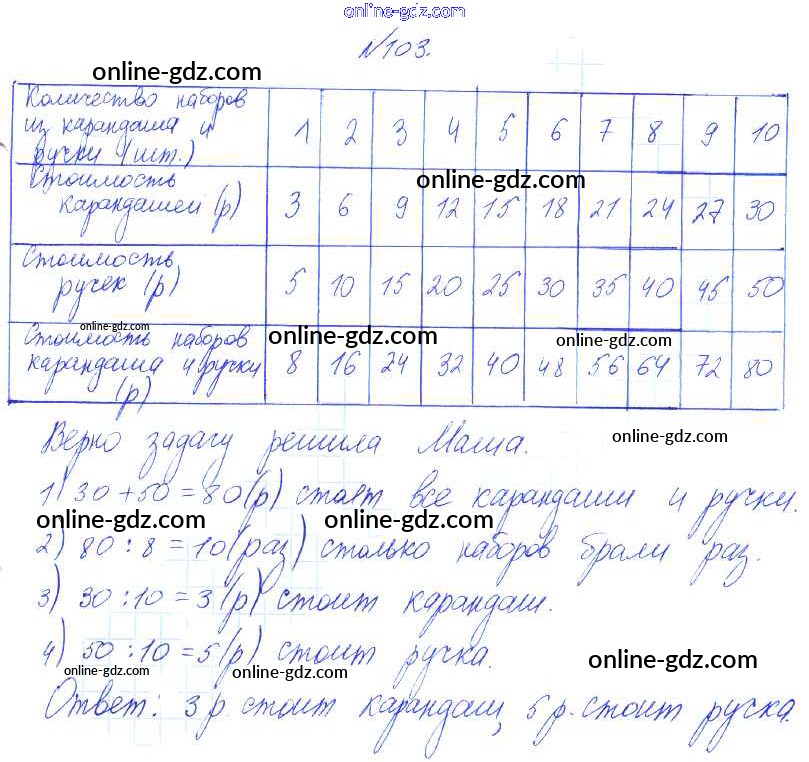 online-gdz.com
№103.
online-gdz.com
Количество наборов
из карандаша и
ручки (шт.) 1 2 3 4 5 6 7 8 9 10
online-gdz.com
Стоимость
карандашей (р) 3 6 9 12 15 18 21 24 27 30
Стоимость
ручек (р) 5 10 15 20 25 30 35 40 45 50
online-gdz.com
online-gdz.com
online-gdz.com
Стоимость наборов
карандаша и ручки
(р) 8 16 24 32 40 48 56 64 72 80
Верно задачу решила Маша.
online-gdz.com
1) 30 + 50 = 80 (р) стоят все карандаши и ручки.
online-gdz.com
online-gdz.com
2) 80 : 8 = 10 (раз) столько наборов брали раз.
3) 30 : 10 = 3 (р) стоит карандаш.
4) 50 : 10 = 5 (р) стоит ручка.
online-gdz.com
online-gdz.com
online-gdz.com
Ответ: 3 р. стоит карандаш, 5 р. стоит ручка.